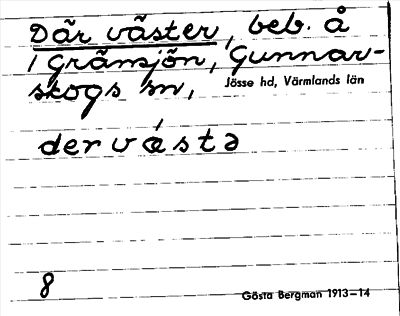 Där väster, beb. å
/ Grämsjön, Gunnar-
skogs sn,
Jösse hd, Värmlands län
der vǽstə
8
Gösta Bergman 1913–14